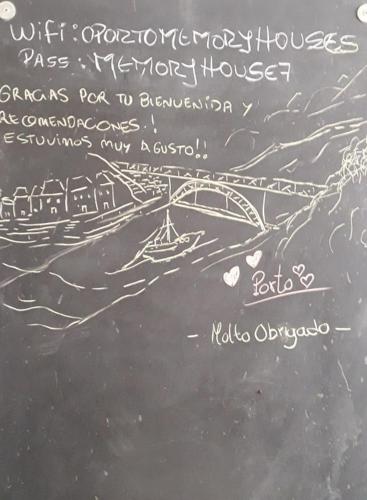 WiFi: OPORTOMEMORYHOUSES
PASS: MEMORYHOUSE7
GRACIAS POR TU BIENVENIDA Y
RECOMENDACIONES!
ESTUVIMOS MUY AGUSTO!!
Porto
- Molto Obrigado -